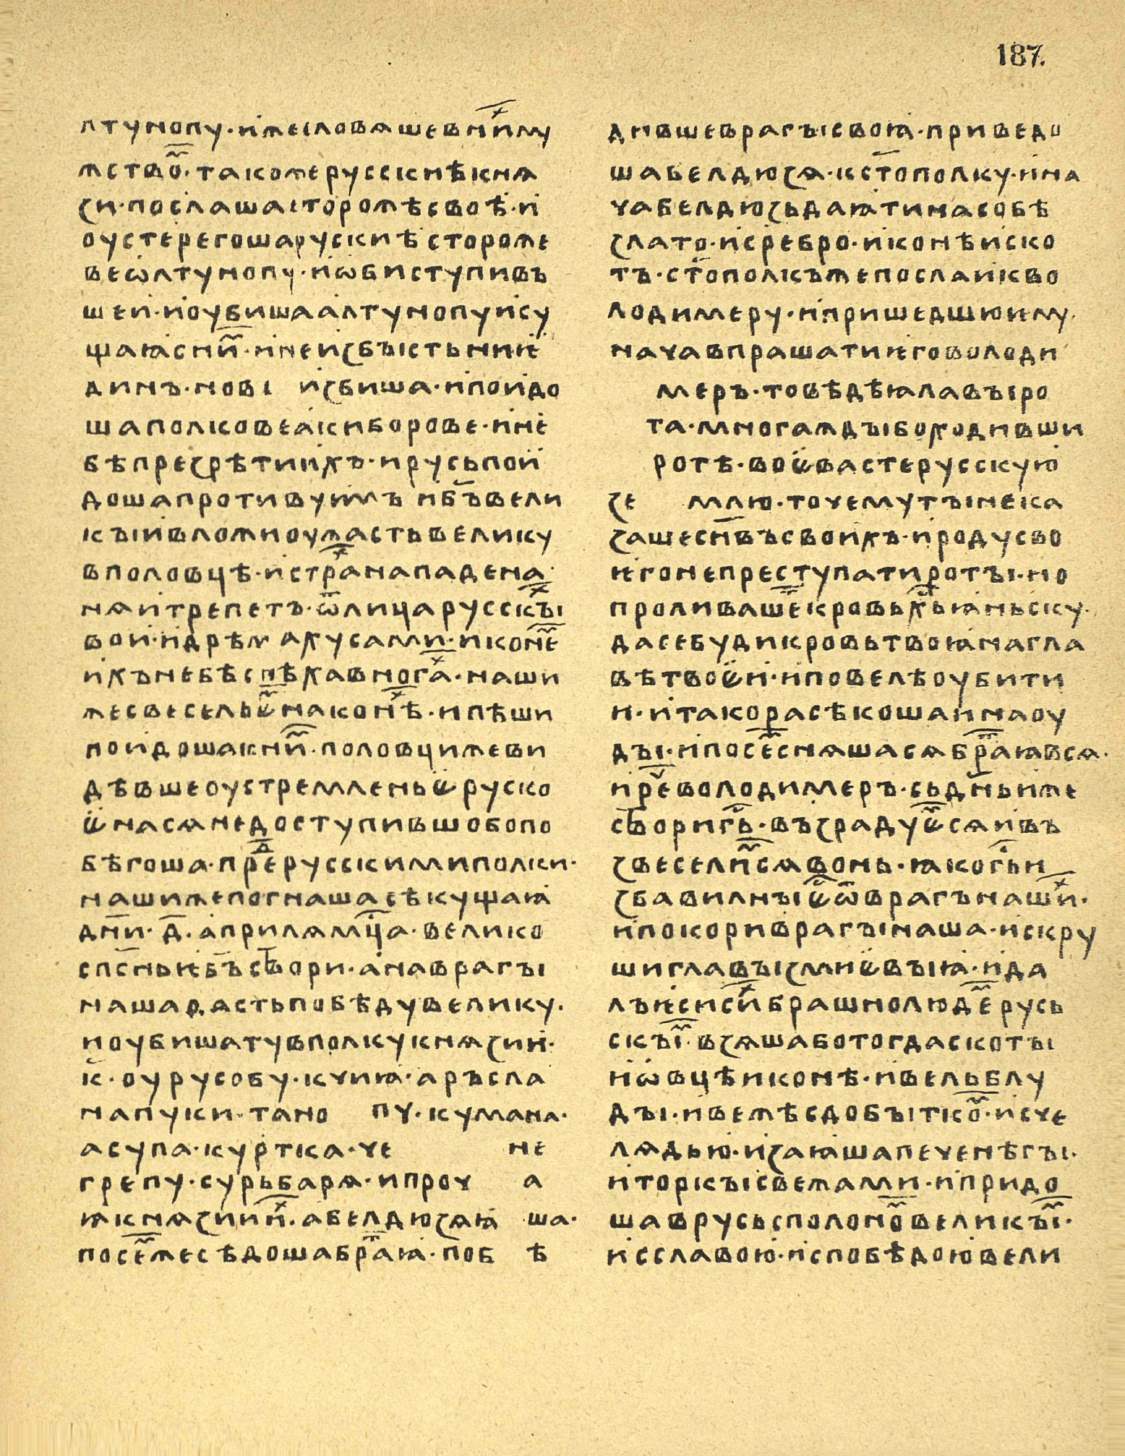 187.
лтунопу· иже словѧше в ни̑ х му
жство̑м· тако же русскиѣ кнѧ
зи· послаша сторожѣ своѣ· и
оустерегоша рускиѣ стороже
ве ѡлтунопу· и ѡбиступивъ
ше и· и оубиша алтунопу и су
щаꙗ с ни̑м· и не избꙑсть ни ѥ
динъ· но вı избиша· и поидо
ша полкове аки борове· и не
бѣ презрѣти ихъ· и русь пои
доша противу имъ и б҃ъ вели
кꙑи вложи оужасть велику
в половцѣ· и страⷯ нападе на
нѧ и трепетъ· ѿ лица русскꙑⷯ
вои· и дрѣм ахусами· и конеⷨ
ихъ не бѣ спѣха в ногаⷯ· наши
же с весельѥⷨ на конѣⷯ· и пѣши
поидоша к ниⷨ· половци же ви
дѣвше оустремленьѥ руско
ѥ на сѧ не доступивше обопо
бѣгоша· преⷣ русскими полки·
наши же погнаша сѣкуще ꙗ
дн҃и· д҃· априлѧ мц҃а· велико
сп҃сньѥ б҃ъ створи· а на врагꙑ
наша дасть побѣду велику·
и оубиша ту в полку кнѧзии·
к҃· оурусобу· кчиꙗ· аръсла
напу ки тано пу· кумана·
асупа· куртка· че не
грепу· сурьбарѧ· и прочı а
ꙗ кнѧзии иⷯ· а белдюзѧ ꙗ ша·
по сеⷨ же сѣдоша браⷮꙗ· поб ѣ
дивше врагꙑ своꙗ· приведо
ша белдюзѧ· к ст҃ополку· и на
ча белдюзь даꙗти на собѣ
злато· и сребро· и конѣ и ско
тъ· ст҃ополкъ же посла и к во
лодимеру· и пришедшю ѥму·
нача впрашати ѥго володи
меръ· то вѣдѣ ꙗла вꙑ ро
та· многаждꙑ бо ходивши
ротѣ· воѥвасте русскую
зе млю· то чему тꙑ не ка
заше сн҃въ своихъ· и роду сво
ѥго не преступати ротꙑ· но
проливашеⷯ кровь хⷭ҇ьꙗньску·
да се буди кровь твоꙗ на гла
вѣ твоѥи· и повелѣ оубити
и· и тако расѣкоша и на оу
дꙑ· и по сеⷨ снѧшасѧ браⷮꙗ всѧ·
и реⷱ володимеръ· сь дн҃ь иже
створи гⷭ҇ь· въздрадуѥⷨсѧ и въ
звеселиⷨсѧ в онь· ꙗко гⷭ҇ь и
збавил нꙑ ѥⷭ҇ ѿ врагъ нашиⷯ·
и покори врагꙑ наша· и скру
ши главꙑ змиѥвꙑꙗ· и да
лъ ѥси сиⷯ брашно людеⷨ русь
скꙑⷨ· взѧша бо тогда скотꙑ
и ѡвцѣ и конѣ· и вельблу
дꙑ· и вежѣ с добꙑткоⷨ· и с че
лѧдью· и заꙗша печенѣгꙑ·
и торкꙑ с вежами· и придо
ша в русь с полоноⷨ великꙑⷨ·
и с славою· и с побѣдою вели